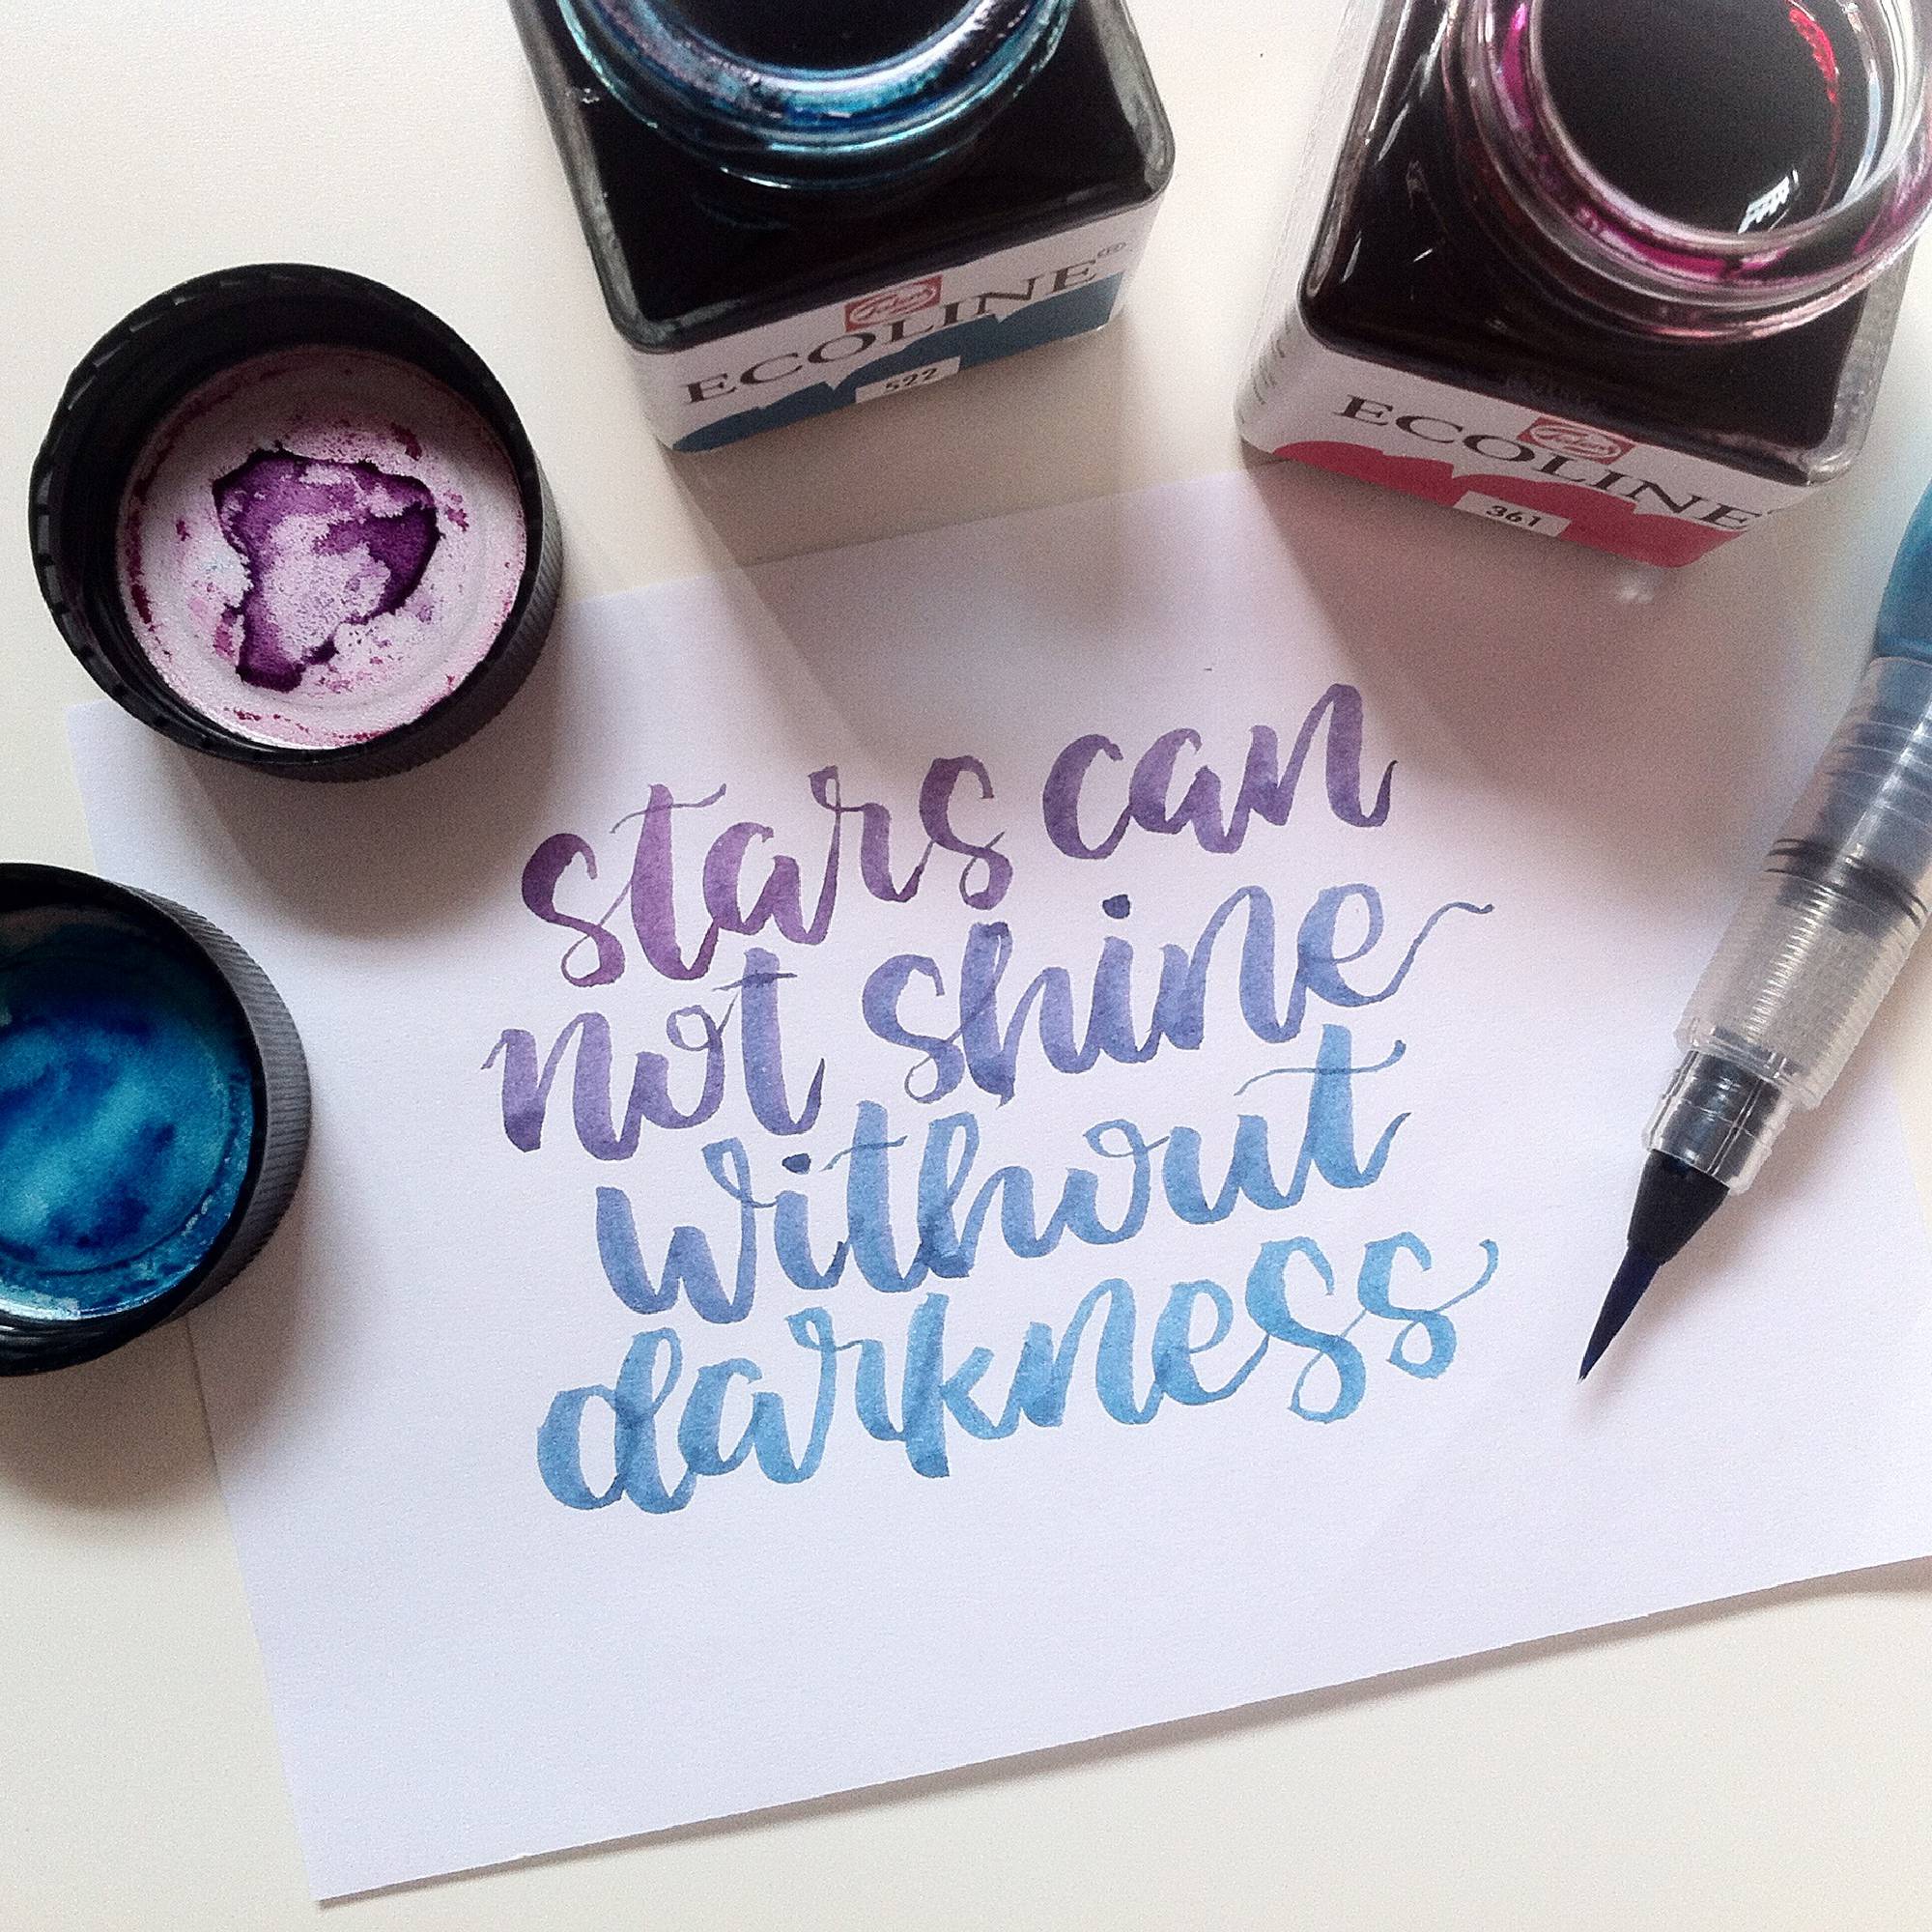 Talens
ECOLINE®
522
Talens
ECOLINE
361
stars can
not shine
without
darkness